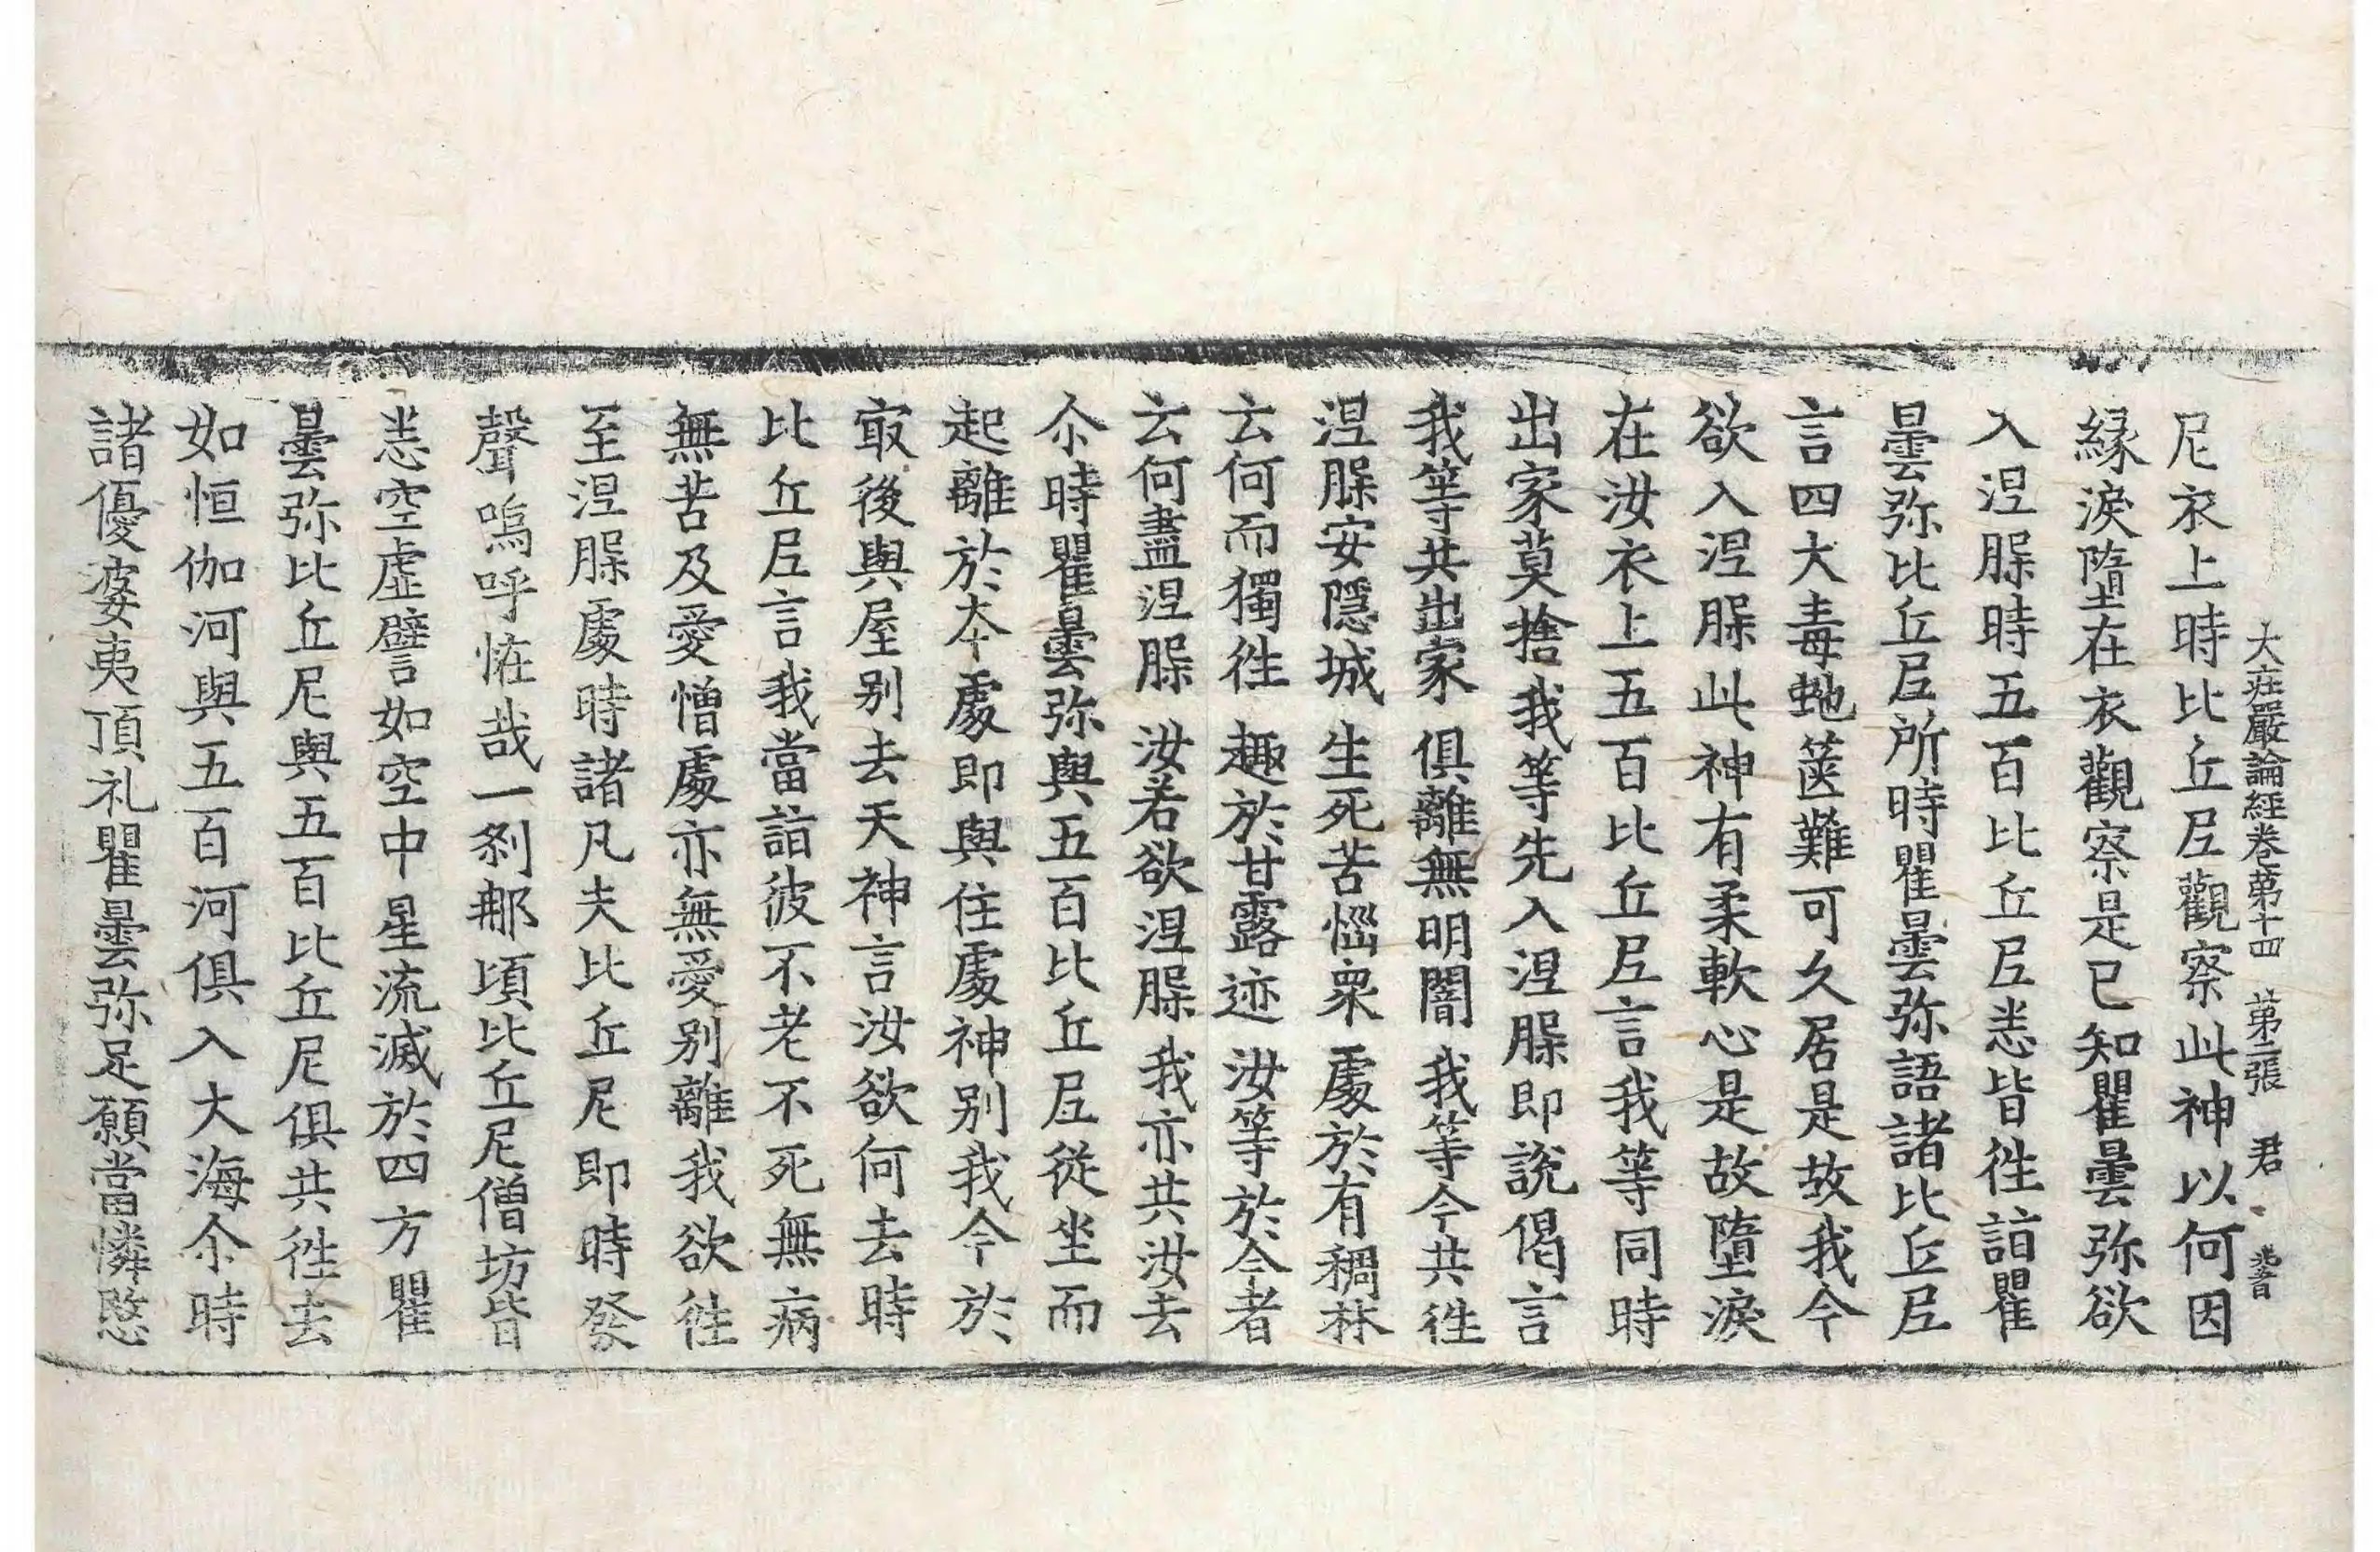 大庄嚴論經卷苐十四　苐二張　君
尼衣上時比丘尼觀察此神以何因
緣淚墮在衣觀察是已知瞿曇弥欲
入涅脲時五百比丘尼悉皆徃詣瞿
曇弥比丘尼所時瞿曇弥語諸比丘尼
言四大毒虵篋難可久居是故我今
欲入涅脲此神有柔軟心是故墮淚
在汝衣上五百比丘尼言我等同時
出家莫捨我等先入涅脲即說偈言
我等共出家　俱離無明闇　我等今共徃
涅脲安隱城　生死苦惱衆　處於有稠林
云何而獨徃　趣於甘露迹　汝等於今者
云何盡涅脲　汝若欲涅脲　我亦共汝去
尒時瞿曇弥與五百比丘尼從坐而
起離於本處即與住處神别我今於
㝡後與屋别去天神言汝欲何去時
比丘尼言我當詣彼不老不死無病
無苦及愛憎處亦無愛别離我欲徃
至涅脲處時諸凡夫比丘尼即時發
聲嗚呼恠哉一剎那頃比丘尼僧坊皆
悉空虛譬如空中星流滅於四方瞿
曇弥比丘尼與五百比丘尼俱共徃去
如恒伽河與五百河俱入大海尒時
諸優婆夷頂礼瞿曇弥足願當憐愍